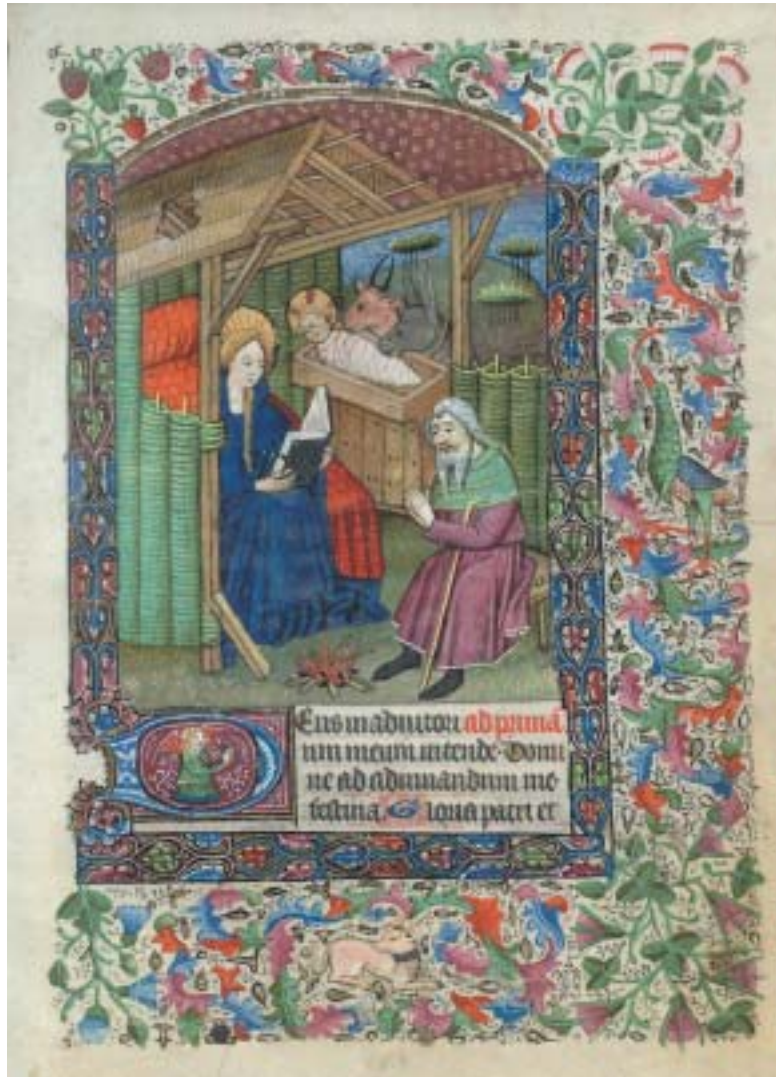 Deus in adiutori ad primã
um meum intende. Domi
ne ad adiuuandum me
festina. Gloria patri et